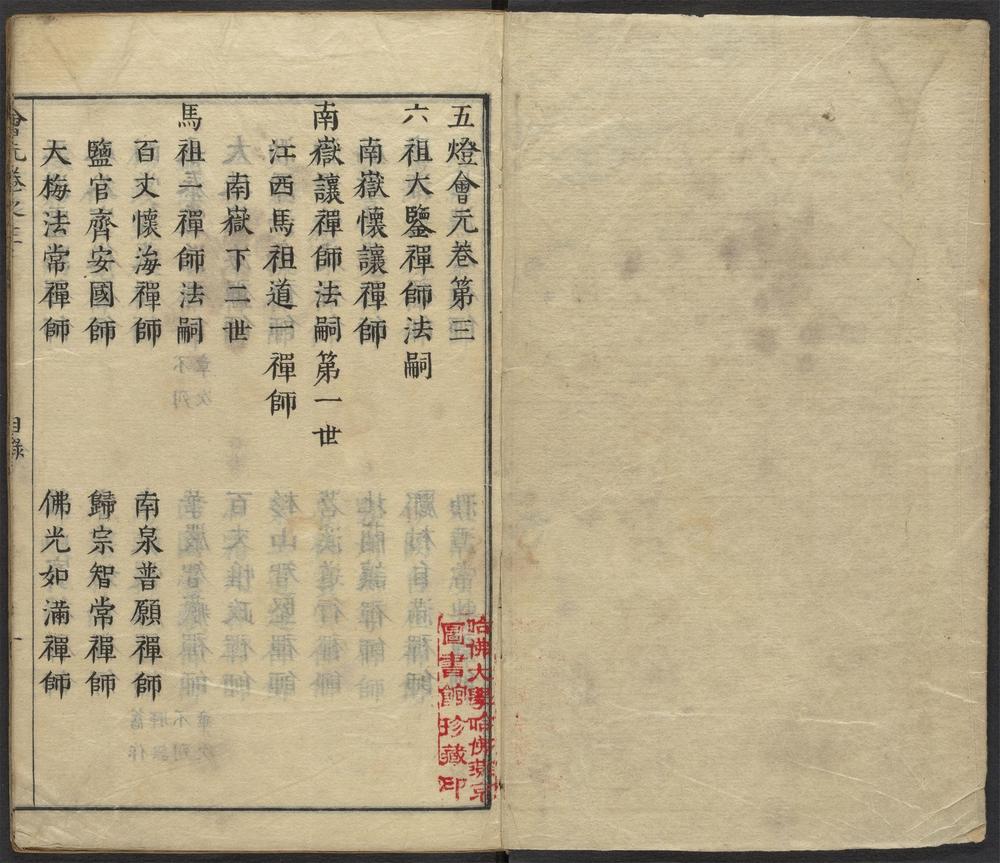 五燈會元卷第三
六祖大鑒禪師法嗣
南嶽懷讓禪師
南嶽讓禪師法嗣第一世
江西馬祖道一禪師
南嶽下二世
馬祖一禪師法嗣
百丈懷海禪師 南泉普願禪師
鹽官齊安國師 歸宗智常禪師
大梅法常禪師 佛光如滿禪師
會元卷之三 目錄 一
哈佛大學哈佛燕京
圖書館珍藏印